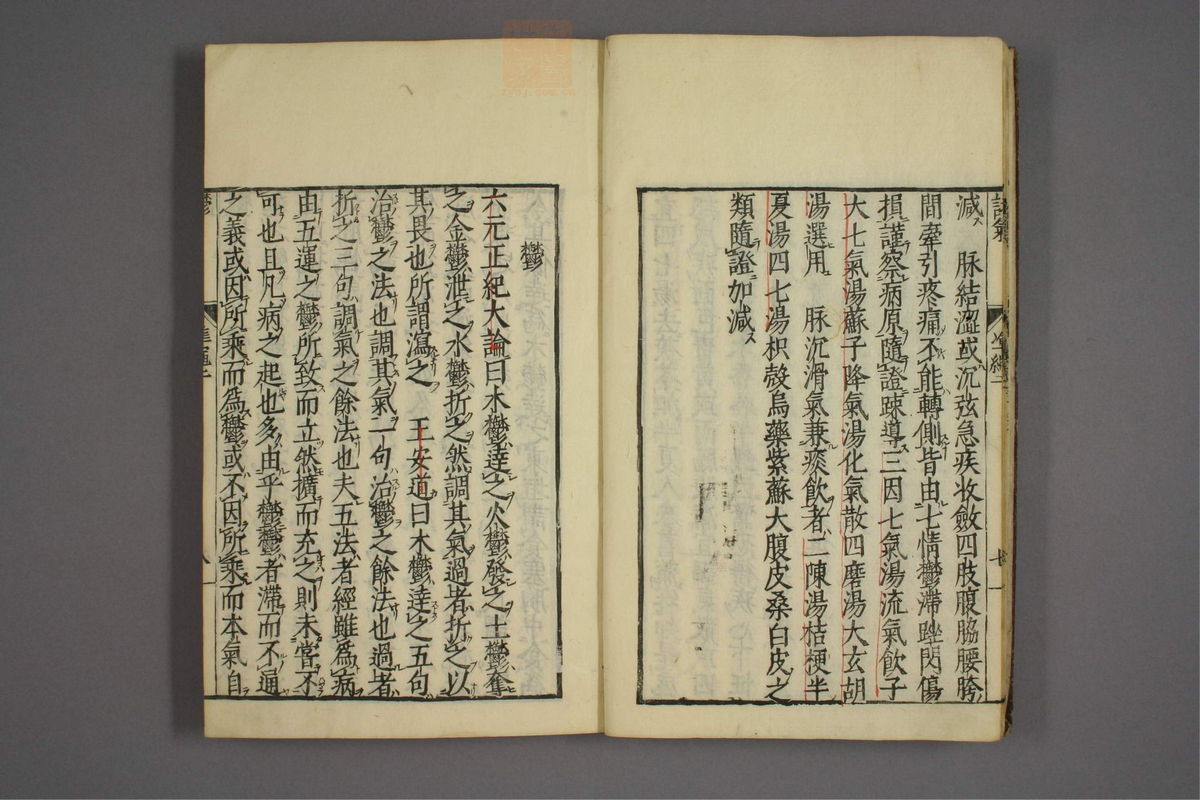 減ス 脉結澀或沉弦急疾收斂四肢腹脇腰胯
間牽引疼痛不能轉側皆由七情鬱滯跬閃傷
損謹察病原隨證踈導三因七氣湯流氣飲子
大七氣湯蘇子降氣湯化氣散四磨湯大玄胡
湯選用 脉沉滑氣兼痰飲者二陳湯桔梗半
夏湯四七湯枳殼烏藥紫蘇大腹皮桑白皮之
類隨證加減ス
鬱
六元正紀大論曰木鬱達之火鬱發之土鬱奪
之金鬱泄之水鬱折之然調其氣過者折之以
其畏也所謂瀉之 王安道曰木鬱達之五句
治鬱之法也調其氣一句治鬱之餘法也過者
折之三句調氣之餘法也夫五法者經雖爲病
由五運之鬱所致而立然擴而充之則未嘗不
可也且凡病之起也多由乎鬱鬱者滯而不通
之義或因所乘而爲鬱或不因所乘而本氣自